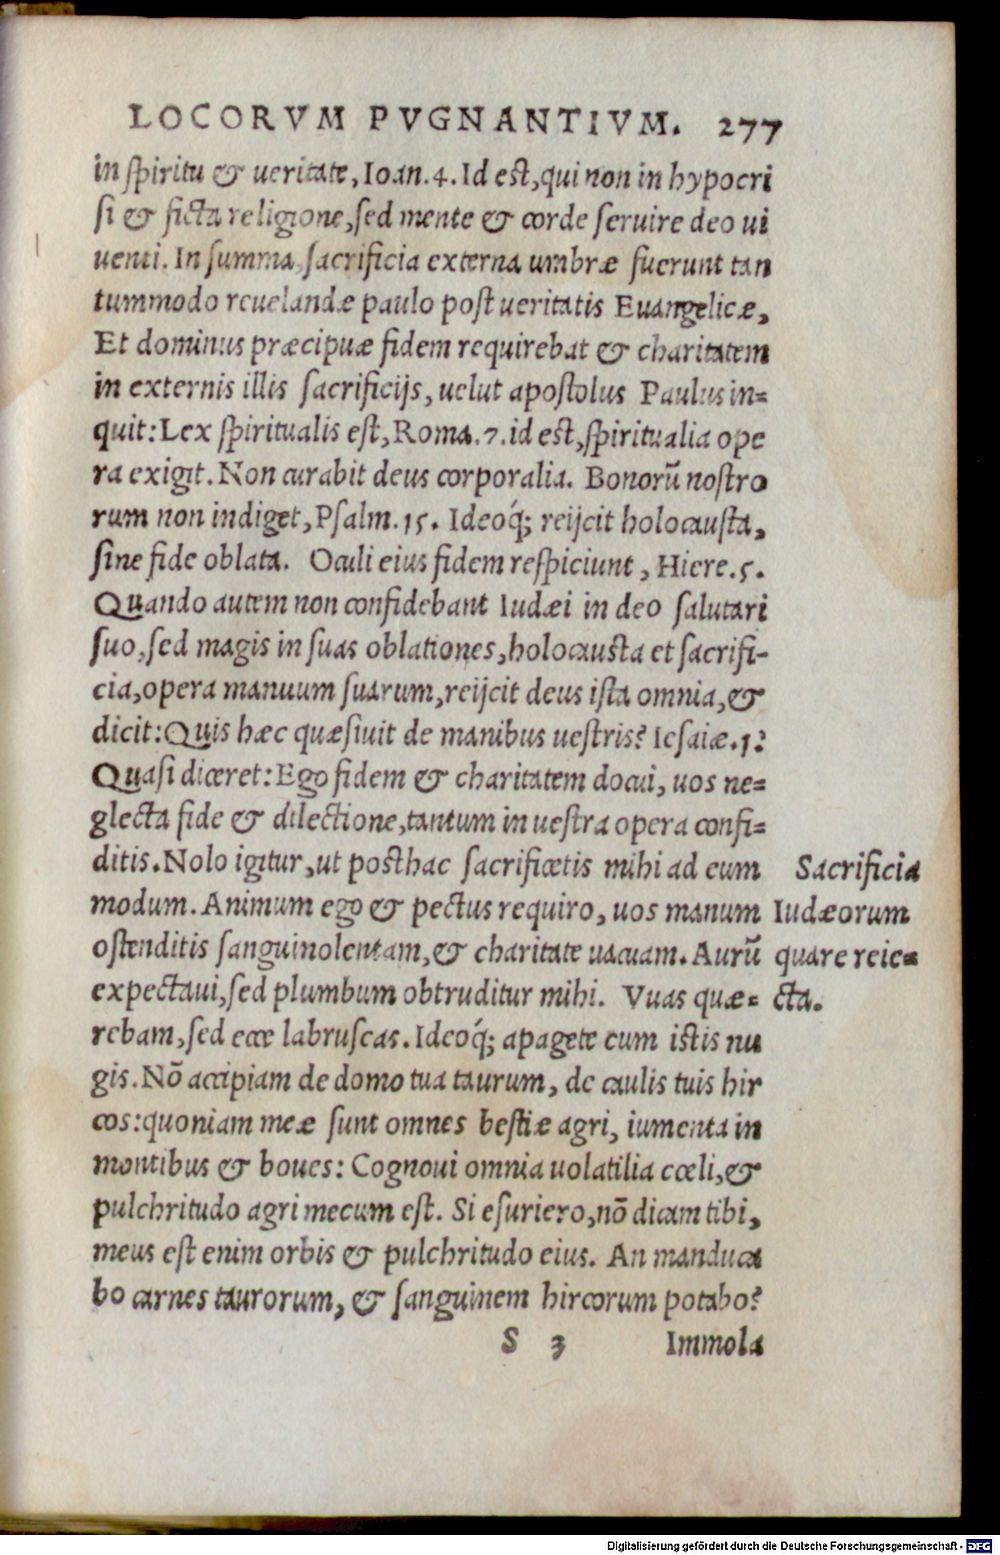 LOCORVM PVGNANTIVM. 277
in spiritu & ueritate, Ioan.4. Id est, qui non in hypocri
si & ficta religione, sed mente & corde seruire deo ui
uenti. In summa, sacrificia externa umbræ fuerunt tan
tummodo reuelandæ paulo post ueritatis Euangelicæ,
Et dominus præcipuæ fidem requirebat & charitatem
in externis illis sacrificijs, uelut apostolus Paulus in=
quit: Lex spiritualis est, Roma.7. id est, spiritualia ope
ra exigit. Non curabit deus corporalia. Bonorũ nostro
rum non indiget, Psalm.15. Ideoq́; reijcit holocausta,
sine fide oblata. Oculi eius fidem respiciunt, Hiere.5.
Quando autem non confidebant Iudæi in deo salutari
suo, sed magis in suas oblationes, holocausta et sacrifi-
cia, opera manuum suarum, reijcit deus ista omnia, &
dicit: Quis hæc quæsiuit de manibus uestris? Iesaiæ.1?
Quasi diceret: Ego fidem & charitatem docui, uos ne=
glecta fide & dilectione, tantum in uestra opera confi=
ditis. Nolo igitur, ut posthac sacrificetis mihi ad eum
modum. Animum ego & pectus requiro, uos manum
ostenditis sanguinolentam, & charitate uacuam. Aurũ
expectaui, sed plumbum obtruditur mihi. Vuas quæ=
rebam, sed ecce labruscas. Ideoq́; apagete cum istis nu
gis. Nõ accipiam de domo tua taurum, de caulis tuis hir
cos: quoniam meæ sunt omnes bestiæ agri, iumenta in
montibus & boues: Cognoui omnia uolatilia cœli, &
pulchritudo agri mecum est. Si esuriero, nõ dicam tibi,
meus est enim orbis & pulchritudo eius. An manduca
bo carnes taurorum, & sanguinem hircorum potabo?
S 3 Immola
Sacrificia
Iudæorum
quare reie=
cta.
Digitalisierung gefördert durch die Deutsche Forschungsgemeinschaft - DFG